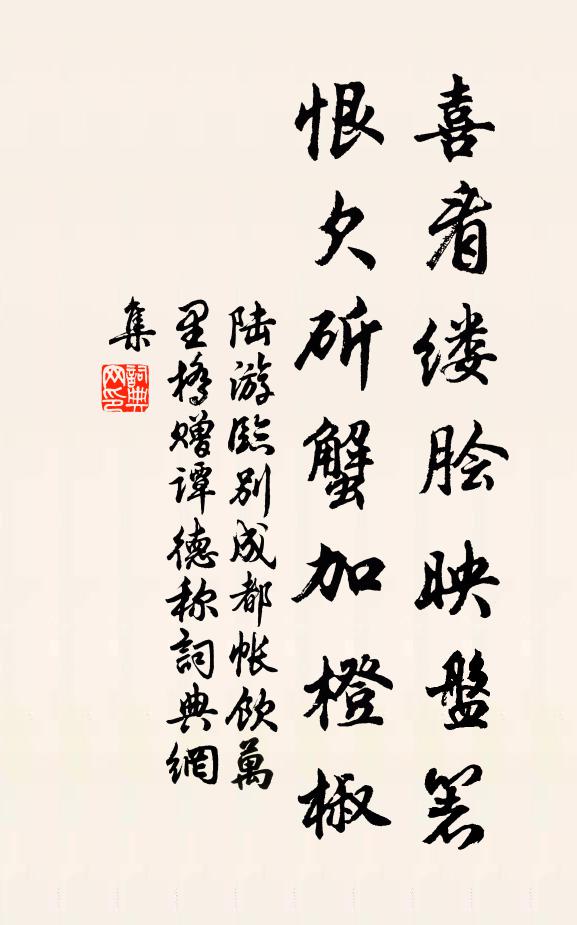 喜看缕脍映盤箸
恨欠斫蟹加橙椒
陆游臨别成都帐饮萬
里橋赠谭德称詞典網
集
詞典網印